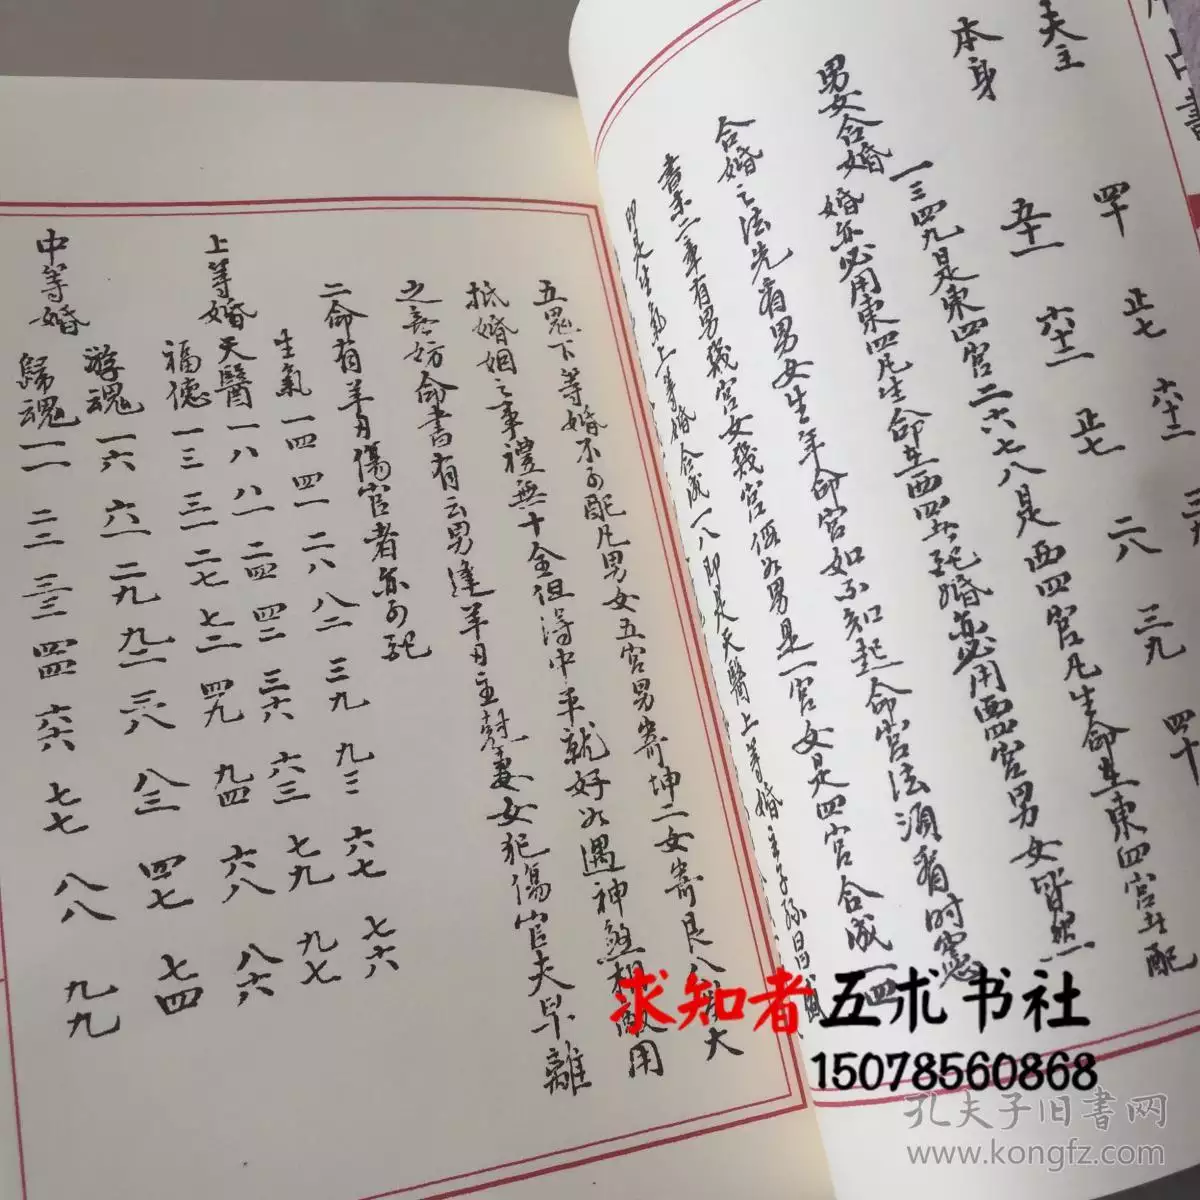 占書
夫主 四十 正七 六十二 三九
本身 五十一 六十二 正七 二八 三九 四十
男女合婚
一三四九是東四宮二六七八是西四宮凡生命在東四宮者配
婚亦必用東四凡生命在西四者配婚亦必用西四宮男女皆然
合婚之法先看男女生年命宮如不知起命宮法須看時憲
書末二章看男幾宮女幾宮假如男是一宮女是四宮合成一四
即是生氣上等婚合成一八即是天醫上等婚主子孫昌盛
五鬼下等婚不可配凡男女五宮男寄坤二女寄艮八
大
抵婚姻之事禮無十全但得中平就好如遇神煞相敵用
之無妨命書有云男逢羊刃主尅妻女犯傷官夫早離
二命有羊刃傷官者亦可配
上等婚
生氣 一四 四一 二八 八二 三九 九三 六七 七六
天醫 一八 八一 二四 四二 三六 六三 七九 九七
福德 一三 三一 二七 七二 四九 九四 六八 八六
中等婚
游魂 一六 六一 二九 九二 三八 八三 四七 七四
歸魂 一一 二二 三三 四四 六六 七七 八八 九九
求知者五术书社
15078560868
孔夫子旧書网
www.kongfz.com